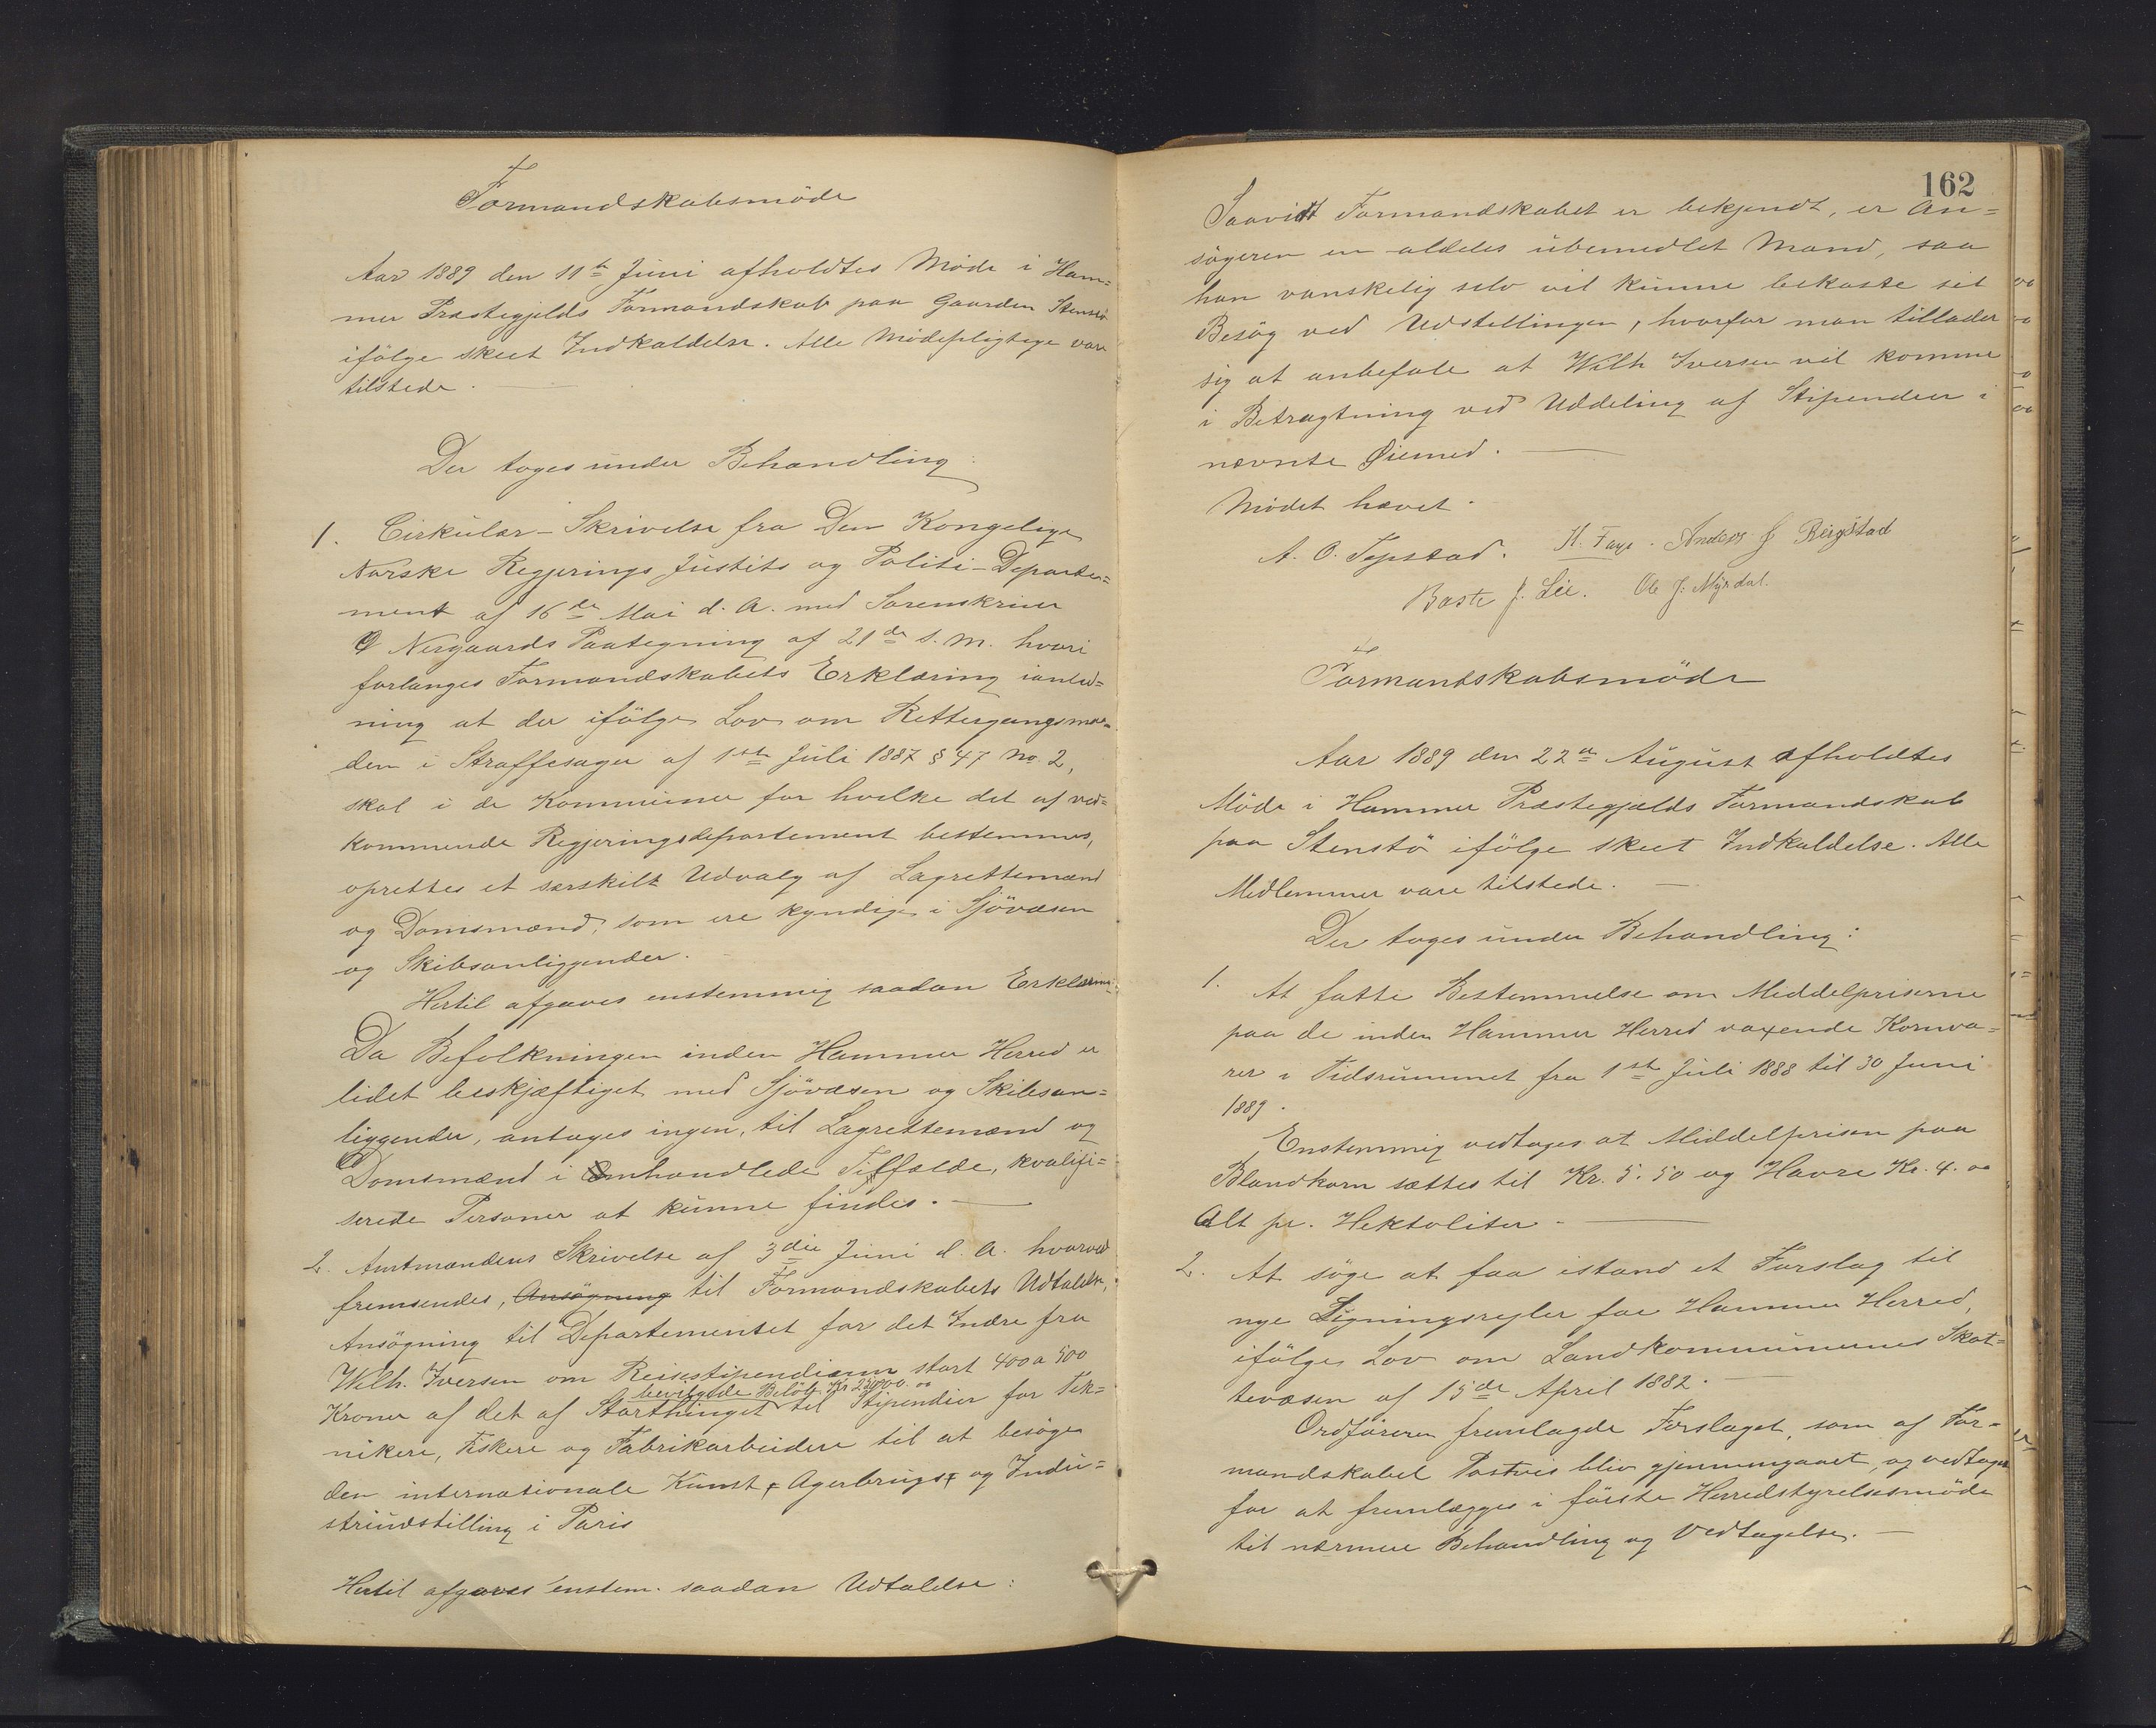 Formandskabsmöde
Aar 1889 den 11te Juni afholdtes Möde i Ham=
mer Præstegjelds Formandskab paa Gaarden Stenstö
ifölge skeet Indkaldelse. Alle Mödepligtige vare
tilstede.
Der toges under Behandling:
1. Cirkulær-Skrivelse fra Den Kongelige
Norske Regjerings Justits og Politi-Departe=
ment af 16de Mai d. A. med Sorenskriver
Nergaards Paategning af 21de s. M. hvori
forlanges Formandskabets Erklæring ianled=
ning at der ifölge Lov om Rettergangsmaa=
den i Straffesager af 1ste Juli 1887 § 47 No. 2,
skal i de Kommuner for hvilke det af ved=
kommende Regjeringsdepartement bestemmes,
oprettes et særskilt Udvalg af Lagrettemænd
og Domsmænd, som ere kyndige i Sjövæsen
og Skibsanliggender.
Hertil afgaves enstemmig saadan Erklæring:
Da Befolkningen inden Hammer Herred er
lidet beskjæftiget med Sjövæsen og Skibsan=
liggender, antages ingen, til Lagrettemænd og
Domsmænd i omhandlede Tilfælde, kvalifi=
serede Personer at kunne findes.
2. Amtmandens Skrivelse af 3die Juni d. A. hvorved
fremsendes, Ansögning til Formandskabets Udtalelse,
Ansögning til Departementet for det Indre fra
Wilh. Iversen om Reisestipendium stort 400 a 500
bevilgede Belöb Kr 22000.00
Kroner af det af Storthinget til Stipendier for Tek=
nikere, Fiskere og Fabrikarbeidere til at besöge
den internationale Kunst, Agerbrugs og Indu=
striudstilling i Paris
Hertil afgaves enstem. saadan Udtalelse:
162
Saavidt Formandskabet er bekjendt, er An=
sögeren en aldeles ubemedlet Mand, saa
han vanskelig selv vil kunne bekoste sit
Besög ved Udstillingen, hvorfor man tillader
sig at anbefale at Wilh Iversen vil komme
i Betragtning ved Uddeling af Stipendier i
nævnte Øiemed.
Mödet hævet.
A. O. Tepstad. H. Faye. Anders J Reigstad
Baste J. Lie. Ole J. Myrdal.
Formandskabsmöde
Aar 1889 den 22de August afholdtes
Möde i Hammer Præstegjelds Formandskab
paa Stenstö ifölge skeet Indkaldelse. Alle
Medlemmer vare tilstede.
Der toges under Behandling:
1. At fatte Bestemmelse om Middelpriserne
paa de inden Hammer Herred voxende Kornva=
rer i Tidsrummet fra 1ste Juli 1888 til 30 Juni
1889.
Enstemmig vedtages at Middelprisen paa
Blandkorn sættes til Kr. 5.50 og Havre Kr. 4.00
Alt pr. Hektoliter.
2. At söge at faa istand et Forslag til
nye Ligningsregler for Hammer Herred,
ifölge Lov om Landkommunernes Skat=
tevæsen af 15de April 1882.
Ordföreren fremlagde Forslaget, som af For=
mandskabet Postvis blev gjennemgaaet, og vedtages
for at fremlægges i förste Herredstyrelsesmöde
til nærmere Behandling og Vedtagelse.